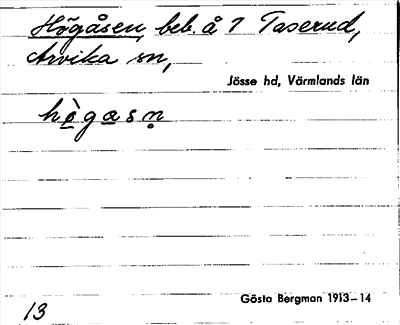 Högåsen, beb. å 7 Taserud,
Arvika sn,
Jösse hd, Värmlands län
hògasn
Gösta Bergman 1913–14
13